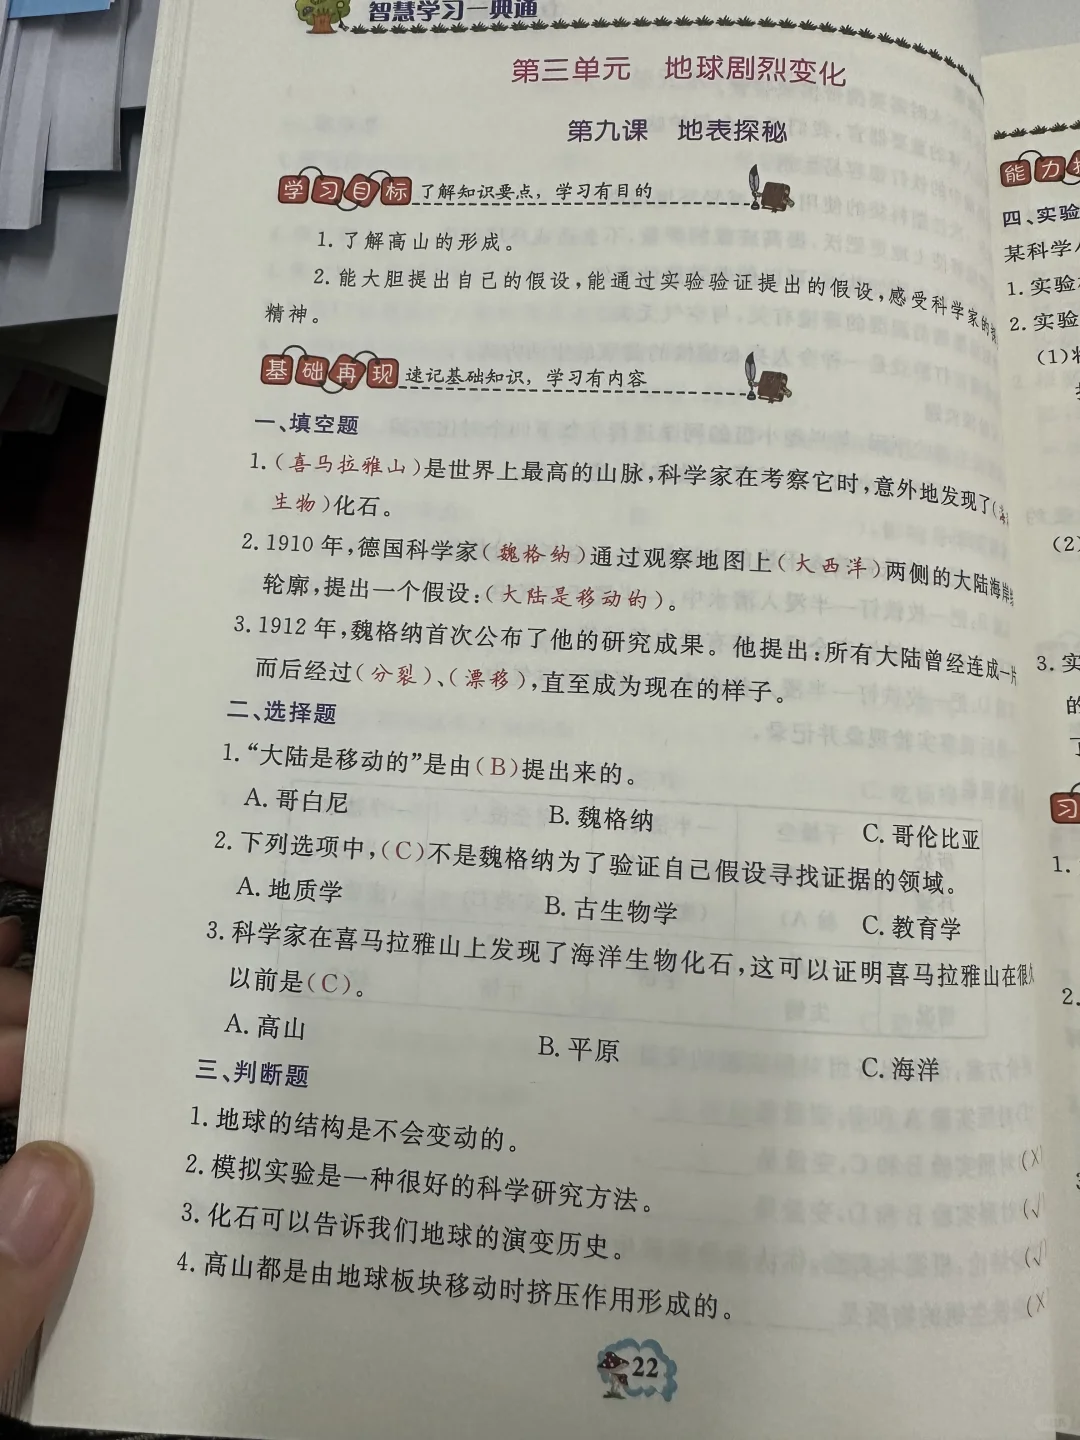 智慧学习一典通
第三单元　地球剧烈变化
第九课　地表探秘
学习目标 了解知识要点，学习有目的
1.了解高山的形成。
2.能大胆提出自己的假设,能通过实验验证提出的假设,感受科学家的
精神。
基础再现 速记基础知识，学习有内容
一、填空题
1.(喜马拉雅山)是世界上最高的山脉,科学家在考察它时,意外地发现了(海
生物)化石。
2.1910年,德国科学家(魏格纳)通过观察地图上(大西洋)两侧的大陆海岸
轮廓,提出一个假设:(大陆是移动的)。
3.1912年,魏格纳首次公布了他的研究成果。他提出:所有大陆曾经连成一片
而后经过(分裂)、(漂移),直至成为现在的样子。
二、选择题
1.“大陆是移动的”是由(B)提出来的。
A.哥白尼 B.魏格纳 C.哥伦比亚
2.下列选项中,(C)不是魏格纳为了验证自己假设寻找证据的领域。
A.地质学 B.古生物学 C.教育学
3.科学家在喜马拉雅山上发现了海洋生物化石,这可以证明喜马拉雅山在很久
以前是(C)。
A.高山 B.平原 C.海洋
三、判断题
1.地球的结构是不会变动的。 (X)
2.模拟实验是一种很好的科学研究方法。 (√)
3.化石可以告诉我们地球的演变历史。 (√)
4.高山都是由地球板块移动时挤压作用形成的。 (X)
22
能力
四、实验
某科学
1.实验
2.实验
(1)
(2)
3.实
的
习
1.
2.